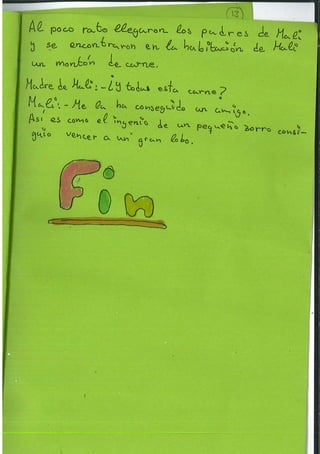 12
Al poco rato llegaron los padres de Mali
y se encontraron en la habitación de Mali
un montón de carne.
Madre de Mali: - ¿Y toda esta carne?
Mali: - Me la ha conseguido un amigo.
Así es como el ingenio de un pequeño zorro consi-
guió vencer a un gran lobo.
Fin